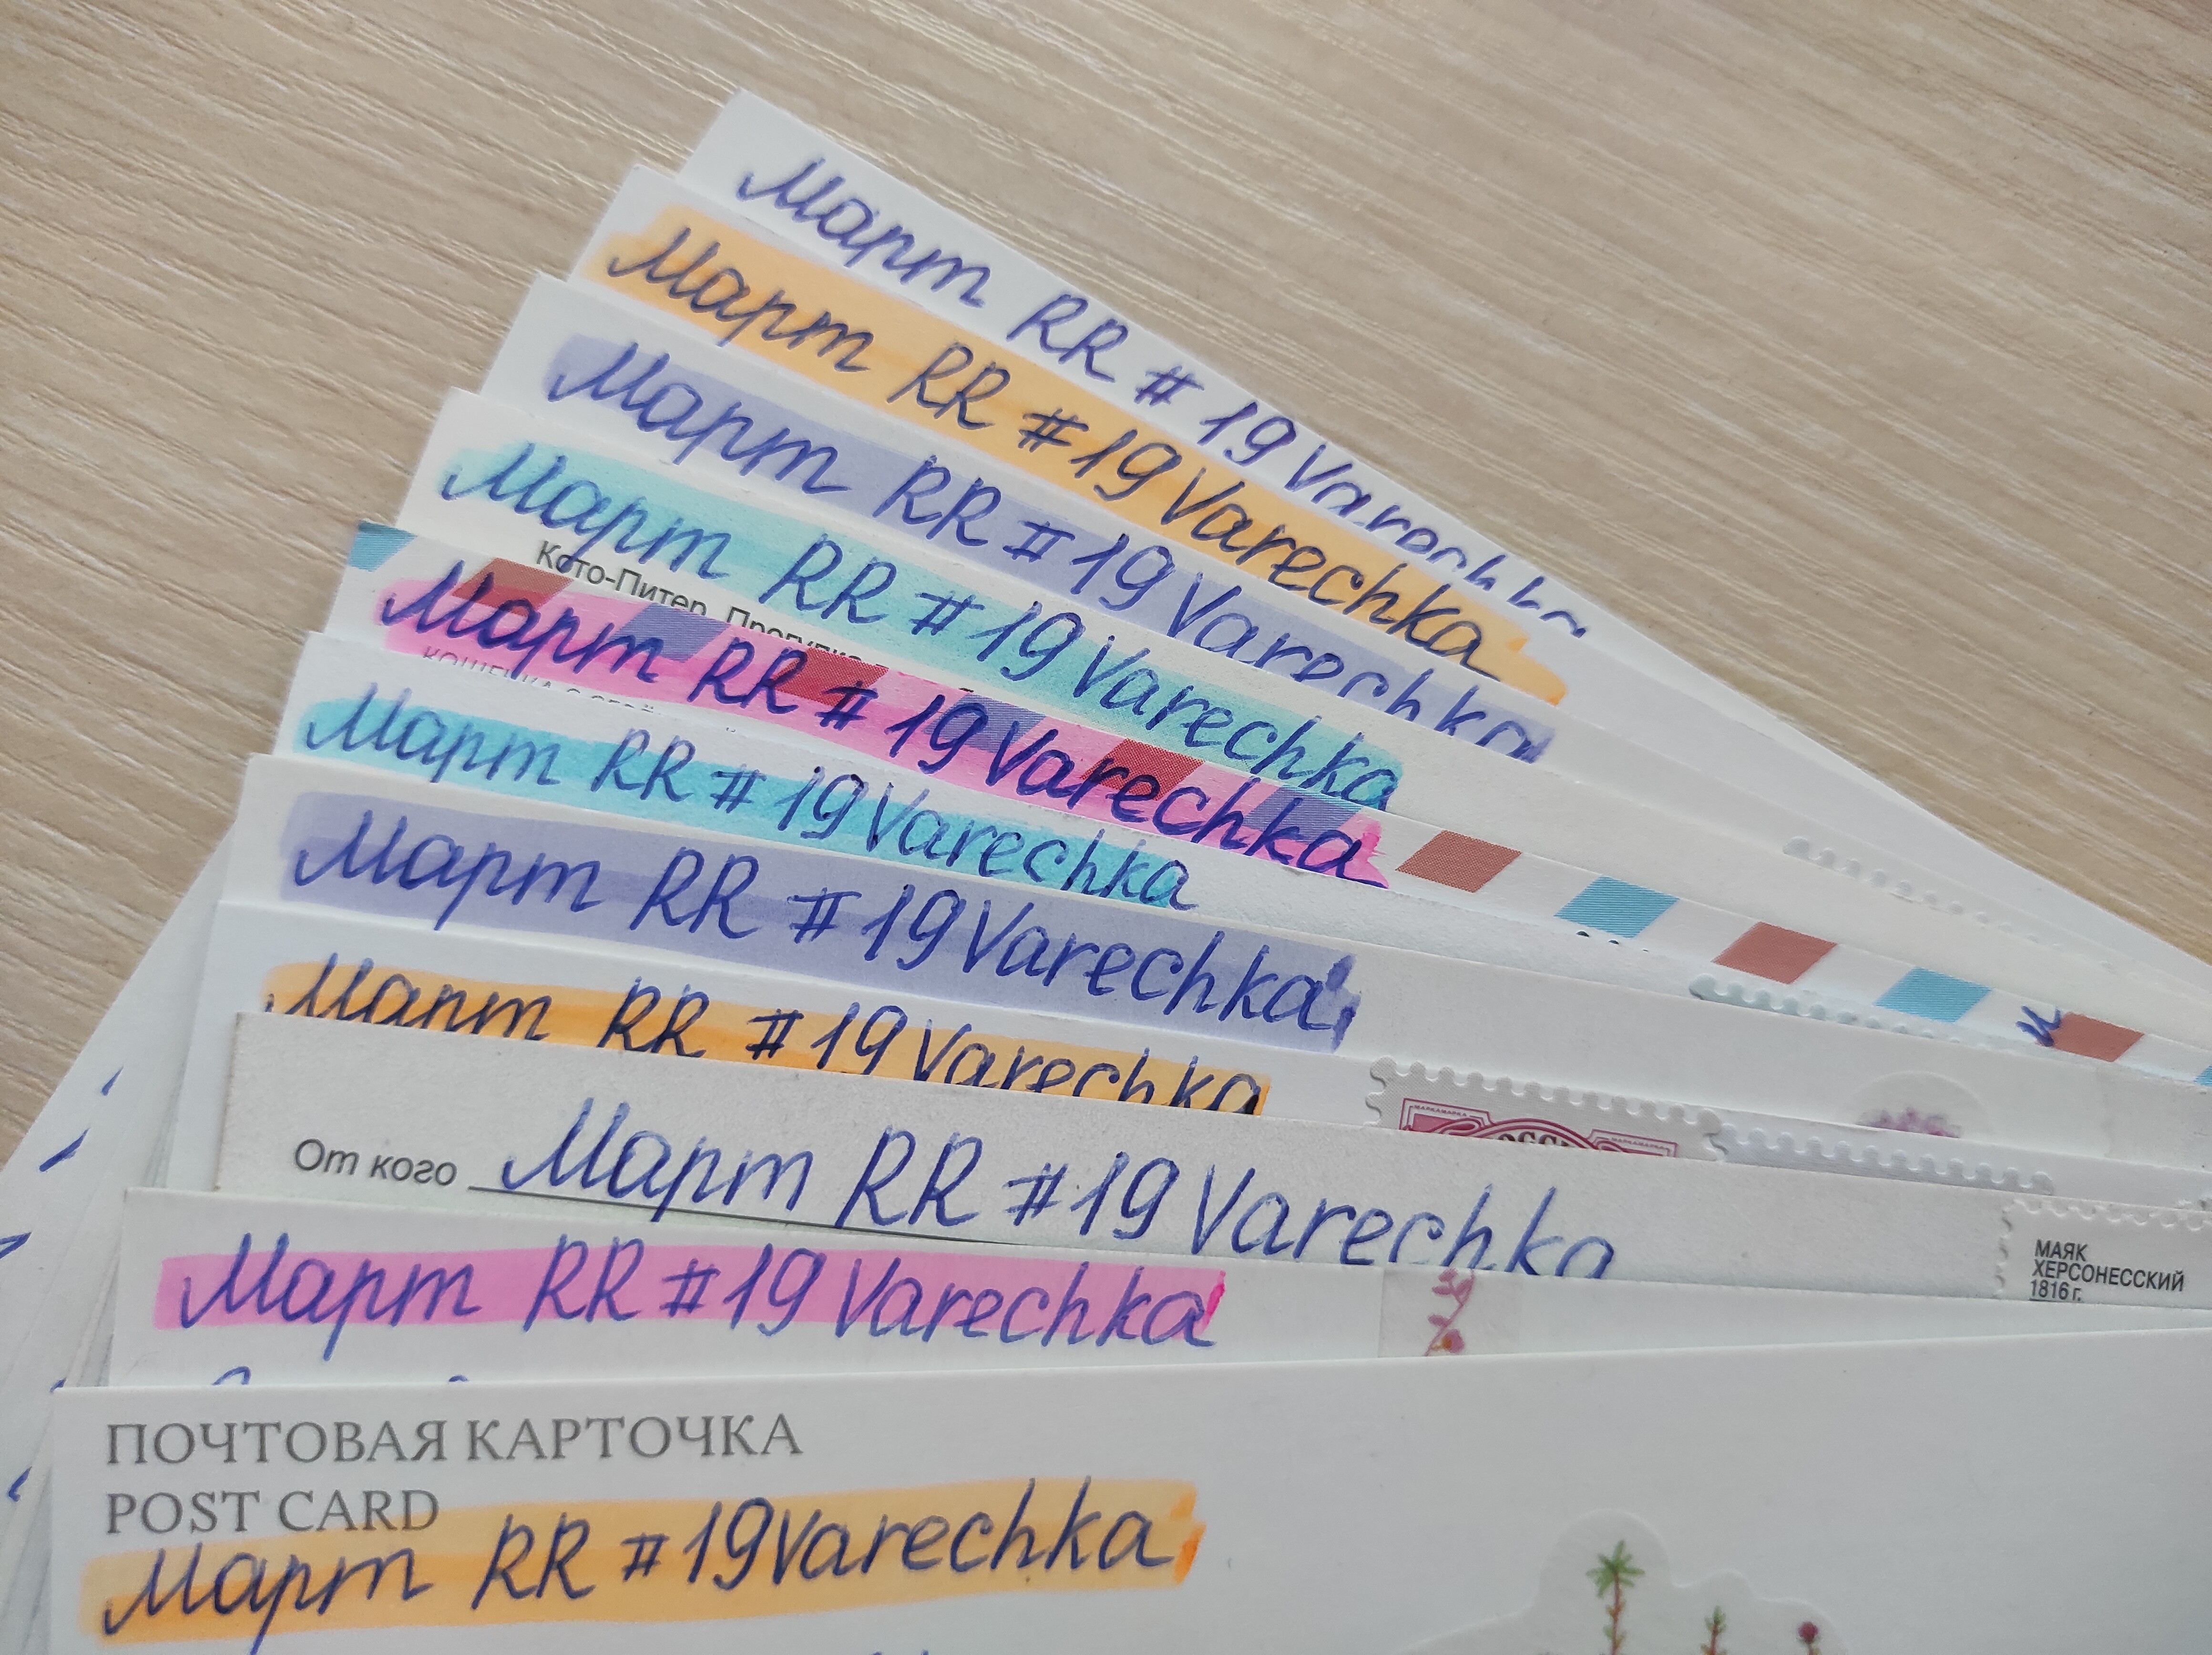 Март RR #19 Varechka
Март RR #19 Varechka
Март RR #19 Varechka
Март RR #19 Varechka
Кото-Питер. Прогулка
Март RR #19 Varechka
Март RR #19 Varechka
Март RR #19 Varechka
Март RR #19 Varechka
От кого Март RR #19 Varechka
МАЯК
ХЕРСОНЕССКИЙ
1816 г.
Март RR #19 Varechka
ПОЧТОВАЯ КАРТОЧКА
POST CARD
Март RR #19 Varechka